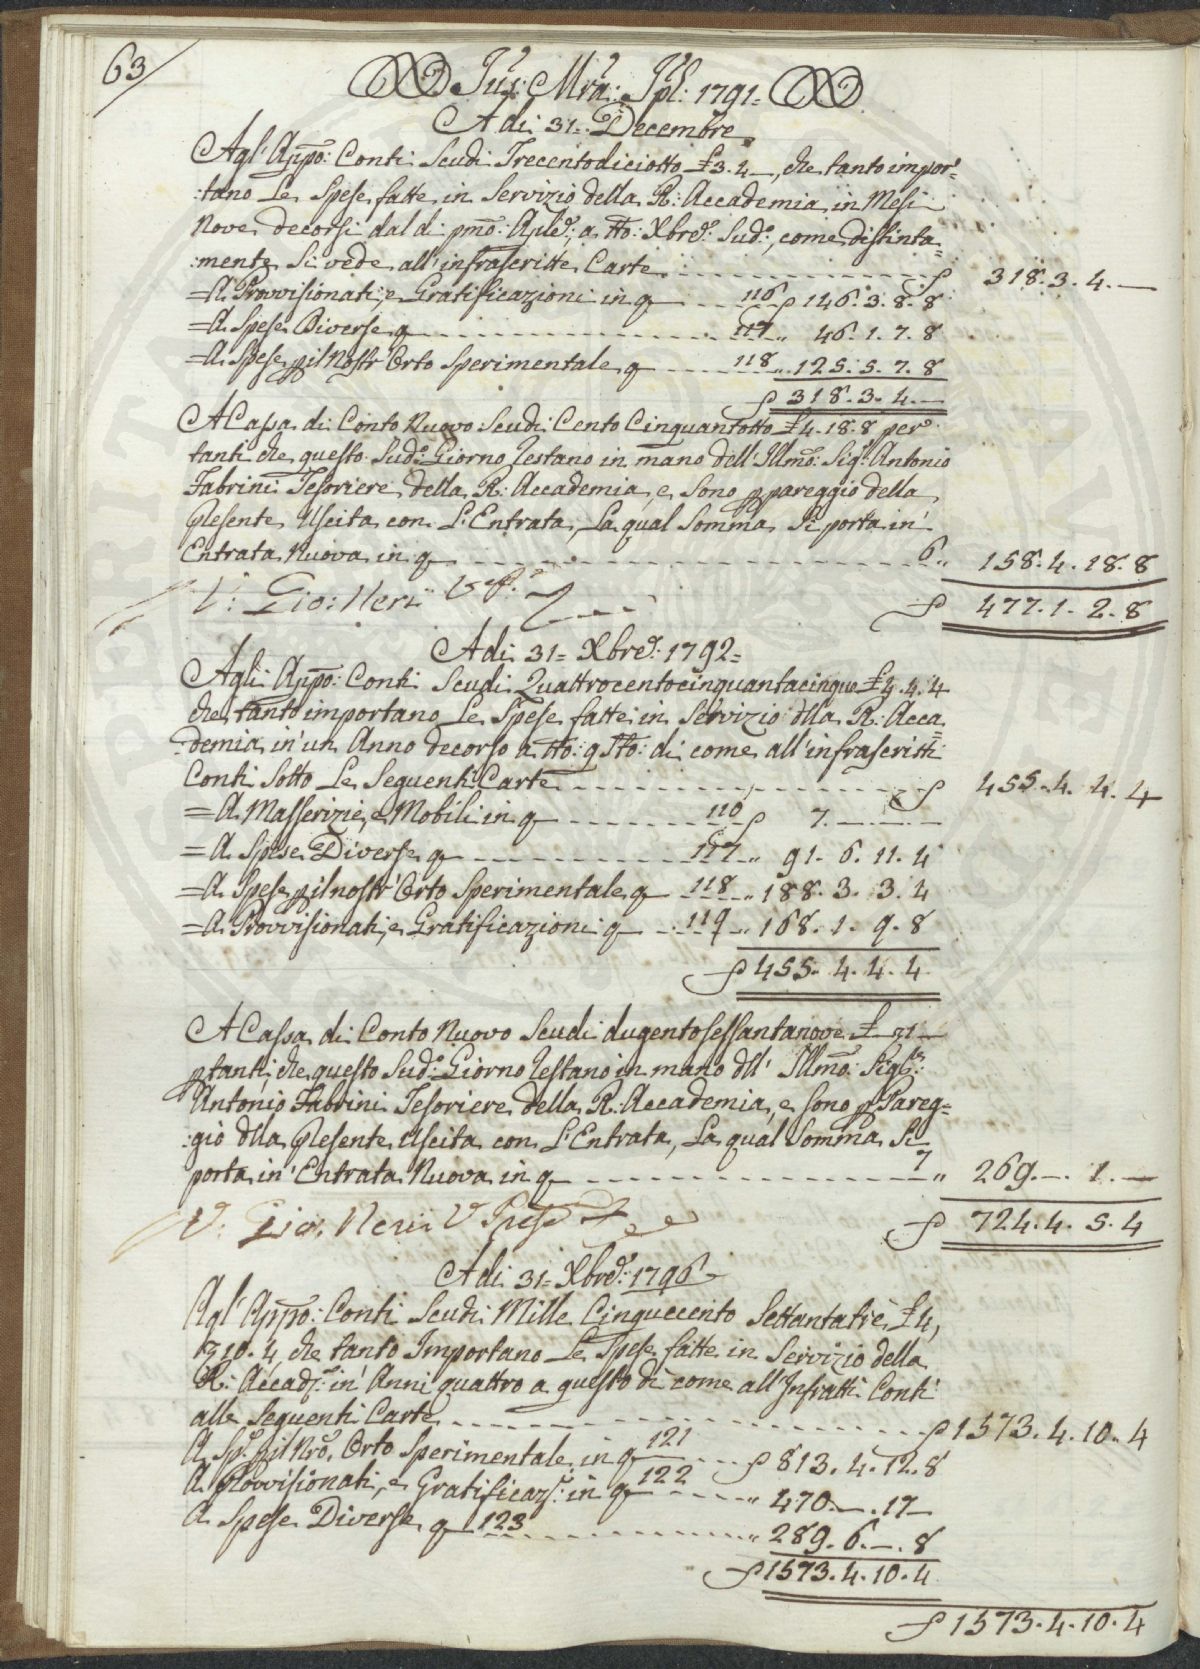 63
Jus: Mra: Spl: 1791=
Adi 31= Decembre
Agl' Appo: Conti Scudi Trecentodiciotto £3.4—, che tanto impor=
:tano Le Spese fatte in Servizio della R: Accademia in Mesi
Nove decorsi dal di pmo: Aple: a tto: Xbre: Sud:, come distinta=
:mente si vede all' infrascritte Carte - - - - - ƒ 318.3.4.—
=A Provvisionati, e Gratificazioni in q - - - 116 ƒ 146.3.8.8
=A Spese Diverse q - - - - - 117 „ 46.1.7.8
=A Spese pil Nostr' Orto Sperimentale q - - - 118 „ 125.5.7.8
ƒ 318.3.4.—
A Cassa di Conto Nuovo Scudi Cento Cinquantotto £4.18.8 per
tanti che questo Sud: Giorno restano in mano dell' Illmo: Sigr: Antonio
Fabrini Tesoriere della R: Accademia, e sono p pareggio della
presente Uscita con L'Entrata, La qual Somma si porta in'
Entrata Nuova in q - - - - - 6 „ 158.4.18.8
V: Gio: Neri V P.
ƒ 477.1.2.8
Adi 31= Xbre: 1792=
Agli Appo: Conti Scudi Quattrocentocinquantacinque £4.4.4
che tanto importano Le Spese fatte in Servizio dlla R: Acca=
:demia in' un Anno decorso a tto: qsto: di come all' infrascritti
Conti Sotto Le Seguenti Carte - - - - - ƒ 455.4.4.4
=A Masserizie, e Mobili in q - - - 110 ƒ 7.—.—.—
=A Spese Diverse q - - - - - 117 „ 91.6.11.4
=A Spese pil nostr' Orto Sperimentale q 118 „ 188.3.3.4
=A Provvisionati, e Gratificazioni q - - 119 „ 168.1.9.8
ƒ 455.4.4.4
A Cassa di Conto Nuovo Scudi dugentosessantanove £ —1—
ptanti, che questo Sud: Giorno restano in mano dll' Illmo: Sigr:
Antonio Fabrini Tesoriere della R: Accademia, e sono p Pareg=
:gio dlla presente Uscita con L'Entrata, La qual Somma Si
porta in' Entrata Nuova in q - - - - - 7 „ 269.—.1.—
V: Gio: Neri V Presid
ƒ 724.4.5.4
Adi 31= Xbre: 1796
Agl' Appo: Conti Scudi Mille Cinquecento Settantatrè £4,
10.4, che tanto Importano Le Spese fatte in Servizio della
R: Accad: in' Anni quattro a questo dì come all' Infratti Conti
alle Seguenti Carte - - - - - ƒ 1573.4.10.4
A Sp: pil Nro. Orto Sperimentale in q 121 - - - ƒ 813.4.12.8
A Provvisionati, e Gratificaz: in q 122 - - - „ 470.—.17—
A Spese Diverse q 123 - - - - - „ 289.6.—.8
ƒ 1573.4.10.4
ƒ 1573.4.10.4